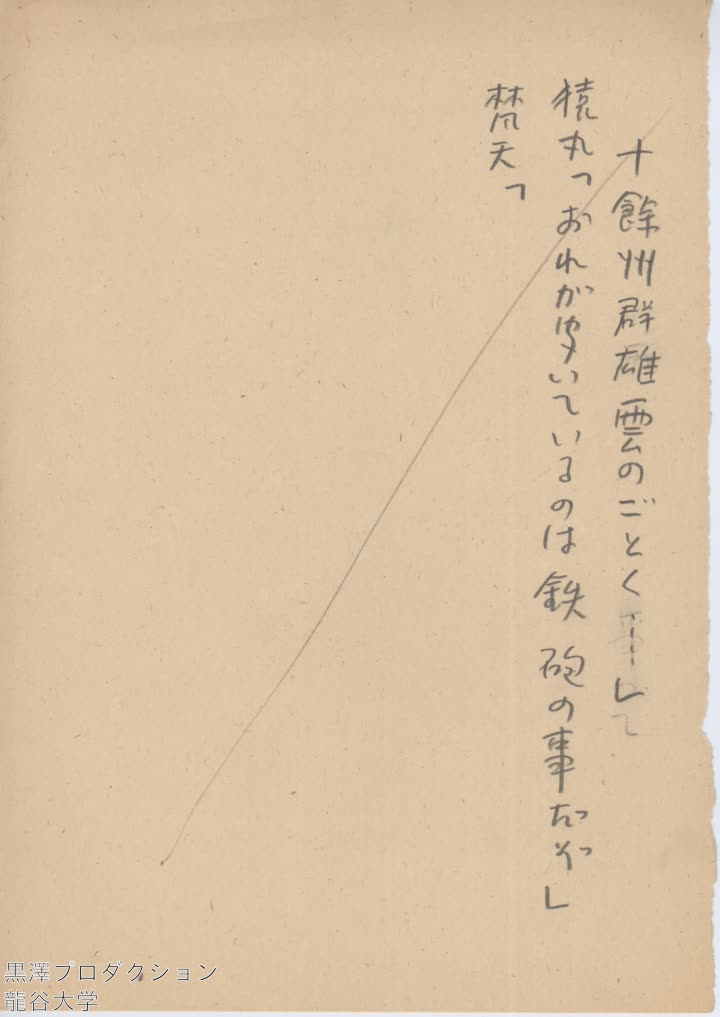 十餘州群雄雲のごとく……」
猿丸「おれが聞いているのは鉄砲の事だぞ」
梵天「
黒澤プロダクション
龍谷大学